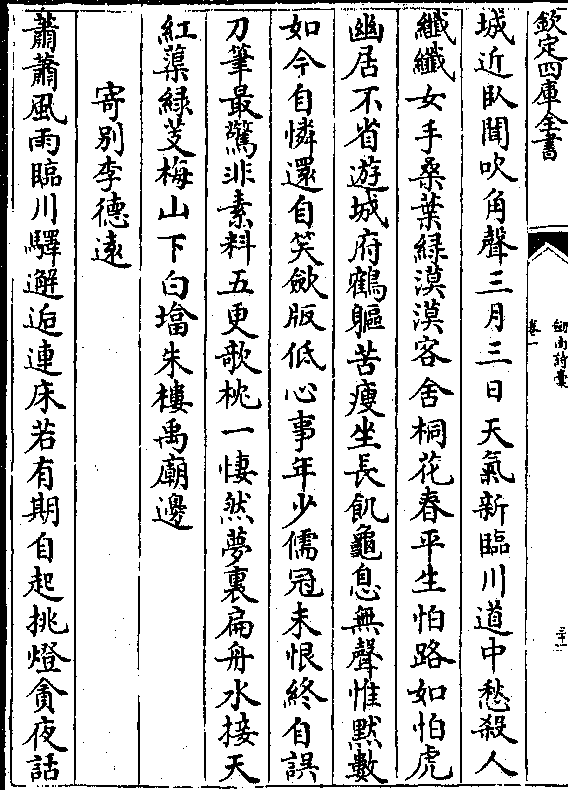 欽定四庫全書
劒南詩藁
卷一
城近臥聞吹角聲三月三日天氣新臨川道中愁殺人
纖纖女手桑葉綠漠漠客舍桐花春平生怕路如怕虎
幽居不省遊城府鶴軀苦瘦坐長飢龜息無聲惟黙數
如今自憐還自笑斂版低心事年少儒冠未恨終自誤
刀筆最驚非素料五更欹枕一悽然夢裏扁舟水接天
紅蕖綠芰梅山下白墖朱樓禹廟邊
寄別李德遠
蕭蕭風雨臨川驛邂逅連床若有期自起挑燈貪夜話